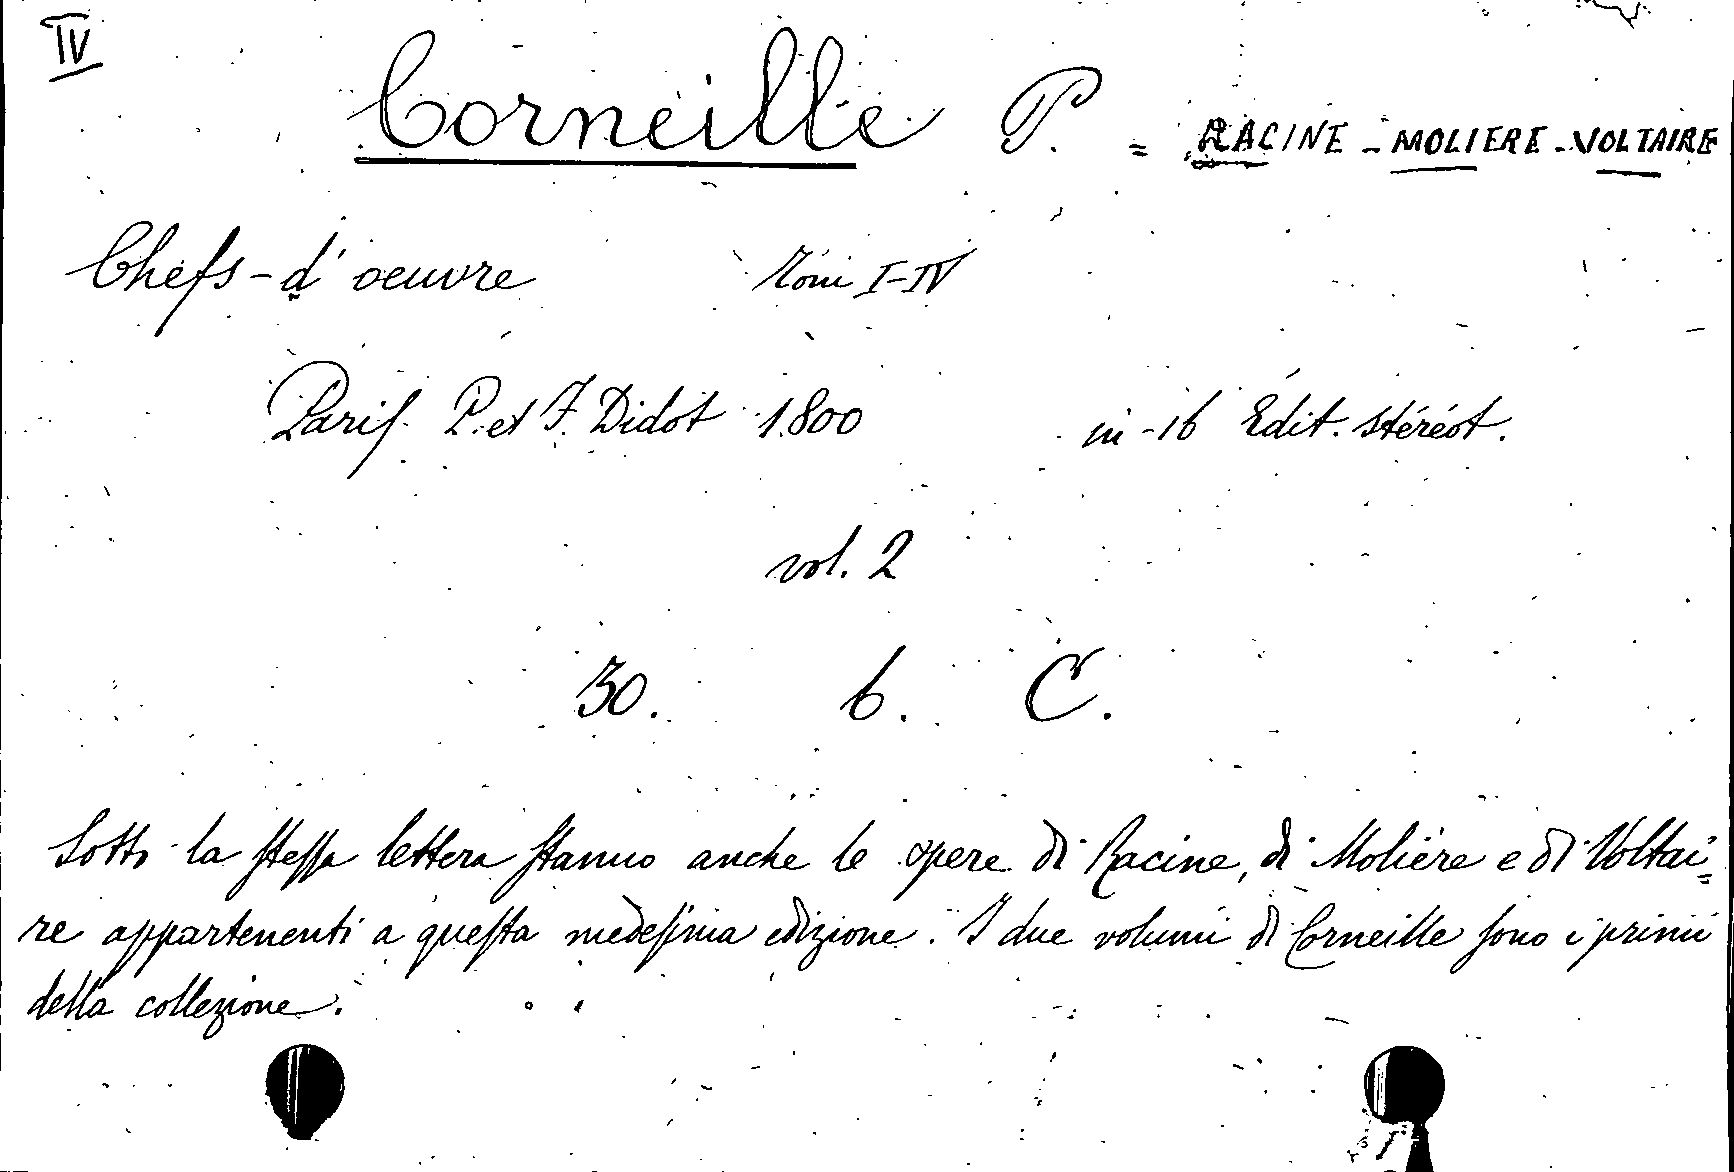 IV
Corneille P. = RACINE - MOLIERE - VOLTAIRE
Chefs-d'oeuvre Tomi I-IV
Paris. P. et F. Didot 1800 in-16 Edit. stéréot.
vol. 2
30. 6. C.
Sotto la stessa lettera stanno anche le opere di Racine, di Molière e di Voltai=
re appartenenti a questa medesima edizione. I due volumi di Corneille sono i primi
della collezione.